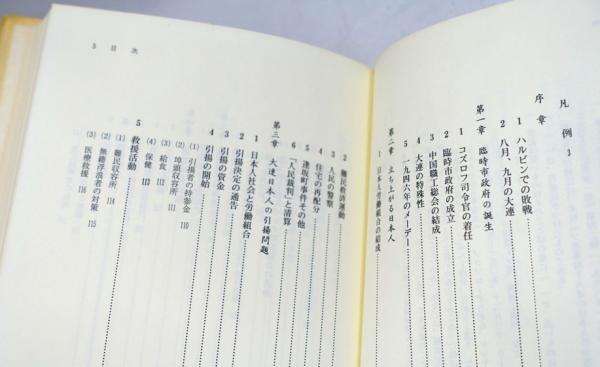 凡例 3
序章
1 ハルビンでの敗戦
2 八月、九月の大連
第一章 臨時市政府の誕生
1 コズロフ司令官の着任
2 臨時市政府の成立
3 中国職工総会の結成
4 大連の特殊性
5 一九四六年のメーデー
第二章 立ち上がる日本人
1 日本人労働組合の結成
5 目次
2 難民救済運動
3 人民の警察
4 住宅の再配分
5 逢坂町事件その他
6 「人民裁判」と清算
第三章 大連日本人の引揚問題
1 日本人社会と労働組合
2 引揚決定の通告
3 引揚の資金
4 引揚の開始
(1) 引揚者の持参金 110
(2) 埠頭収容所 111
(3) 給食 112
(4) 保健 113
5 救援活動
(1) 難民収容所 114
(2) 無籍浮浪者の対策 115
(3) 医療救援 116